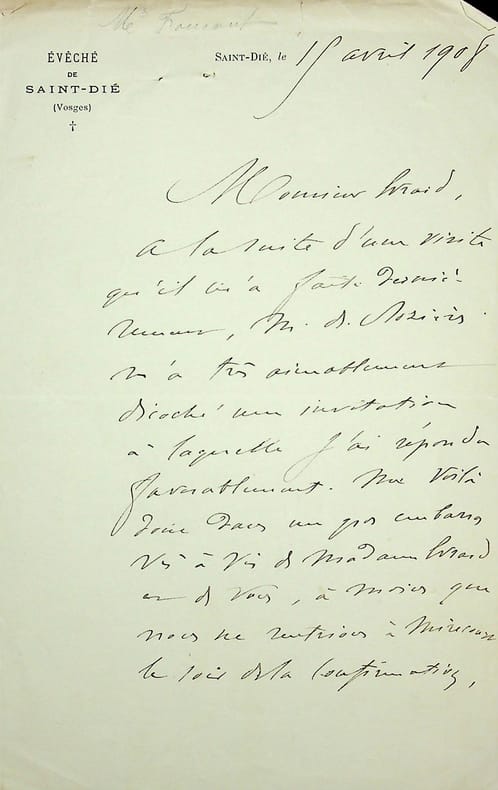 Mgr Foucault
ÉVÊCHÉ
DE
SAINT-DIÉ
(Vosges)
SAINT-DIÉ, le 15 avril 1908
Monsieur Evrard,
A la suite d'une visite
qu'il m'a faite derniè-
rement, M. de
m'a très aimablement
décoché une invitation
à laquelle j'ai répondu
favorablement. Me voilà
donc dans un gros embarras
vis à vis de Madame Evrard
et de vous, à moins que
nous ne rentrions à Mirecourt
le soir de la Confirmation,